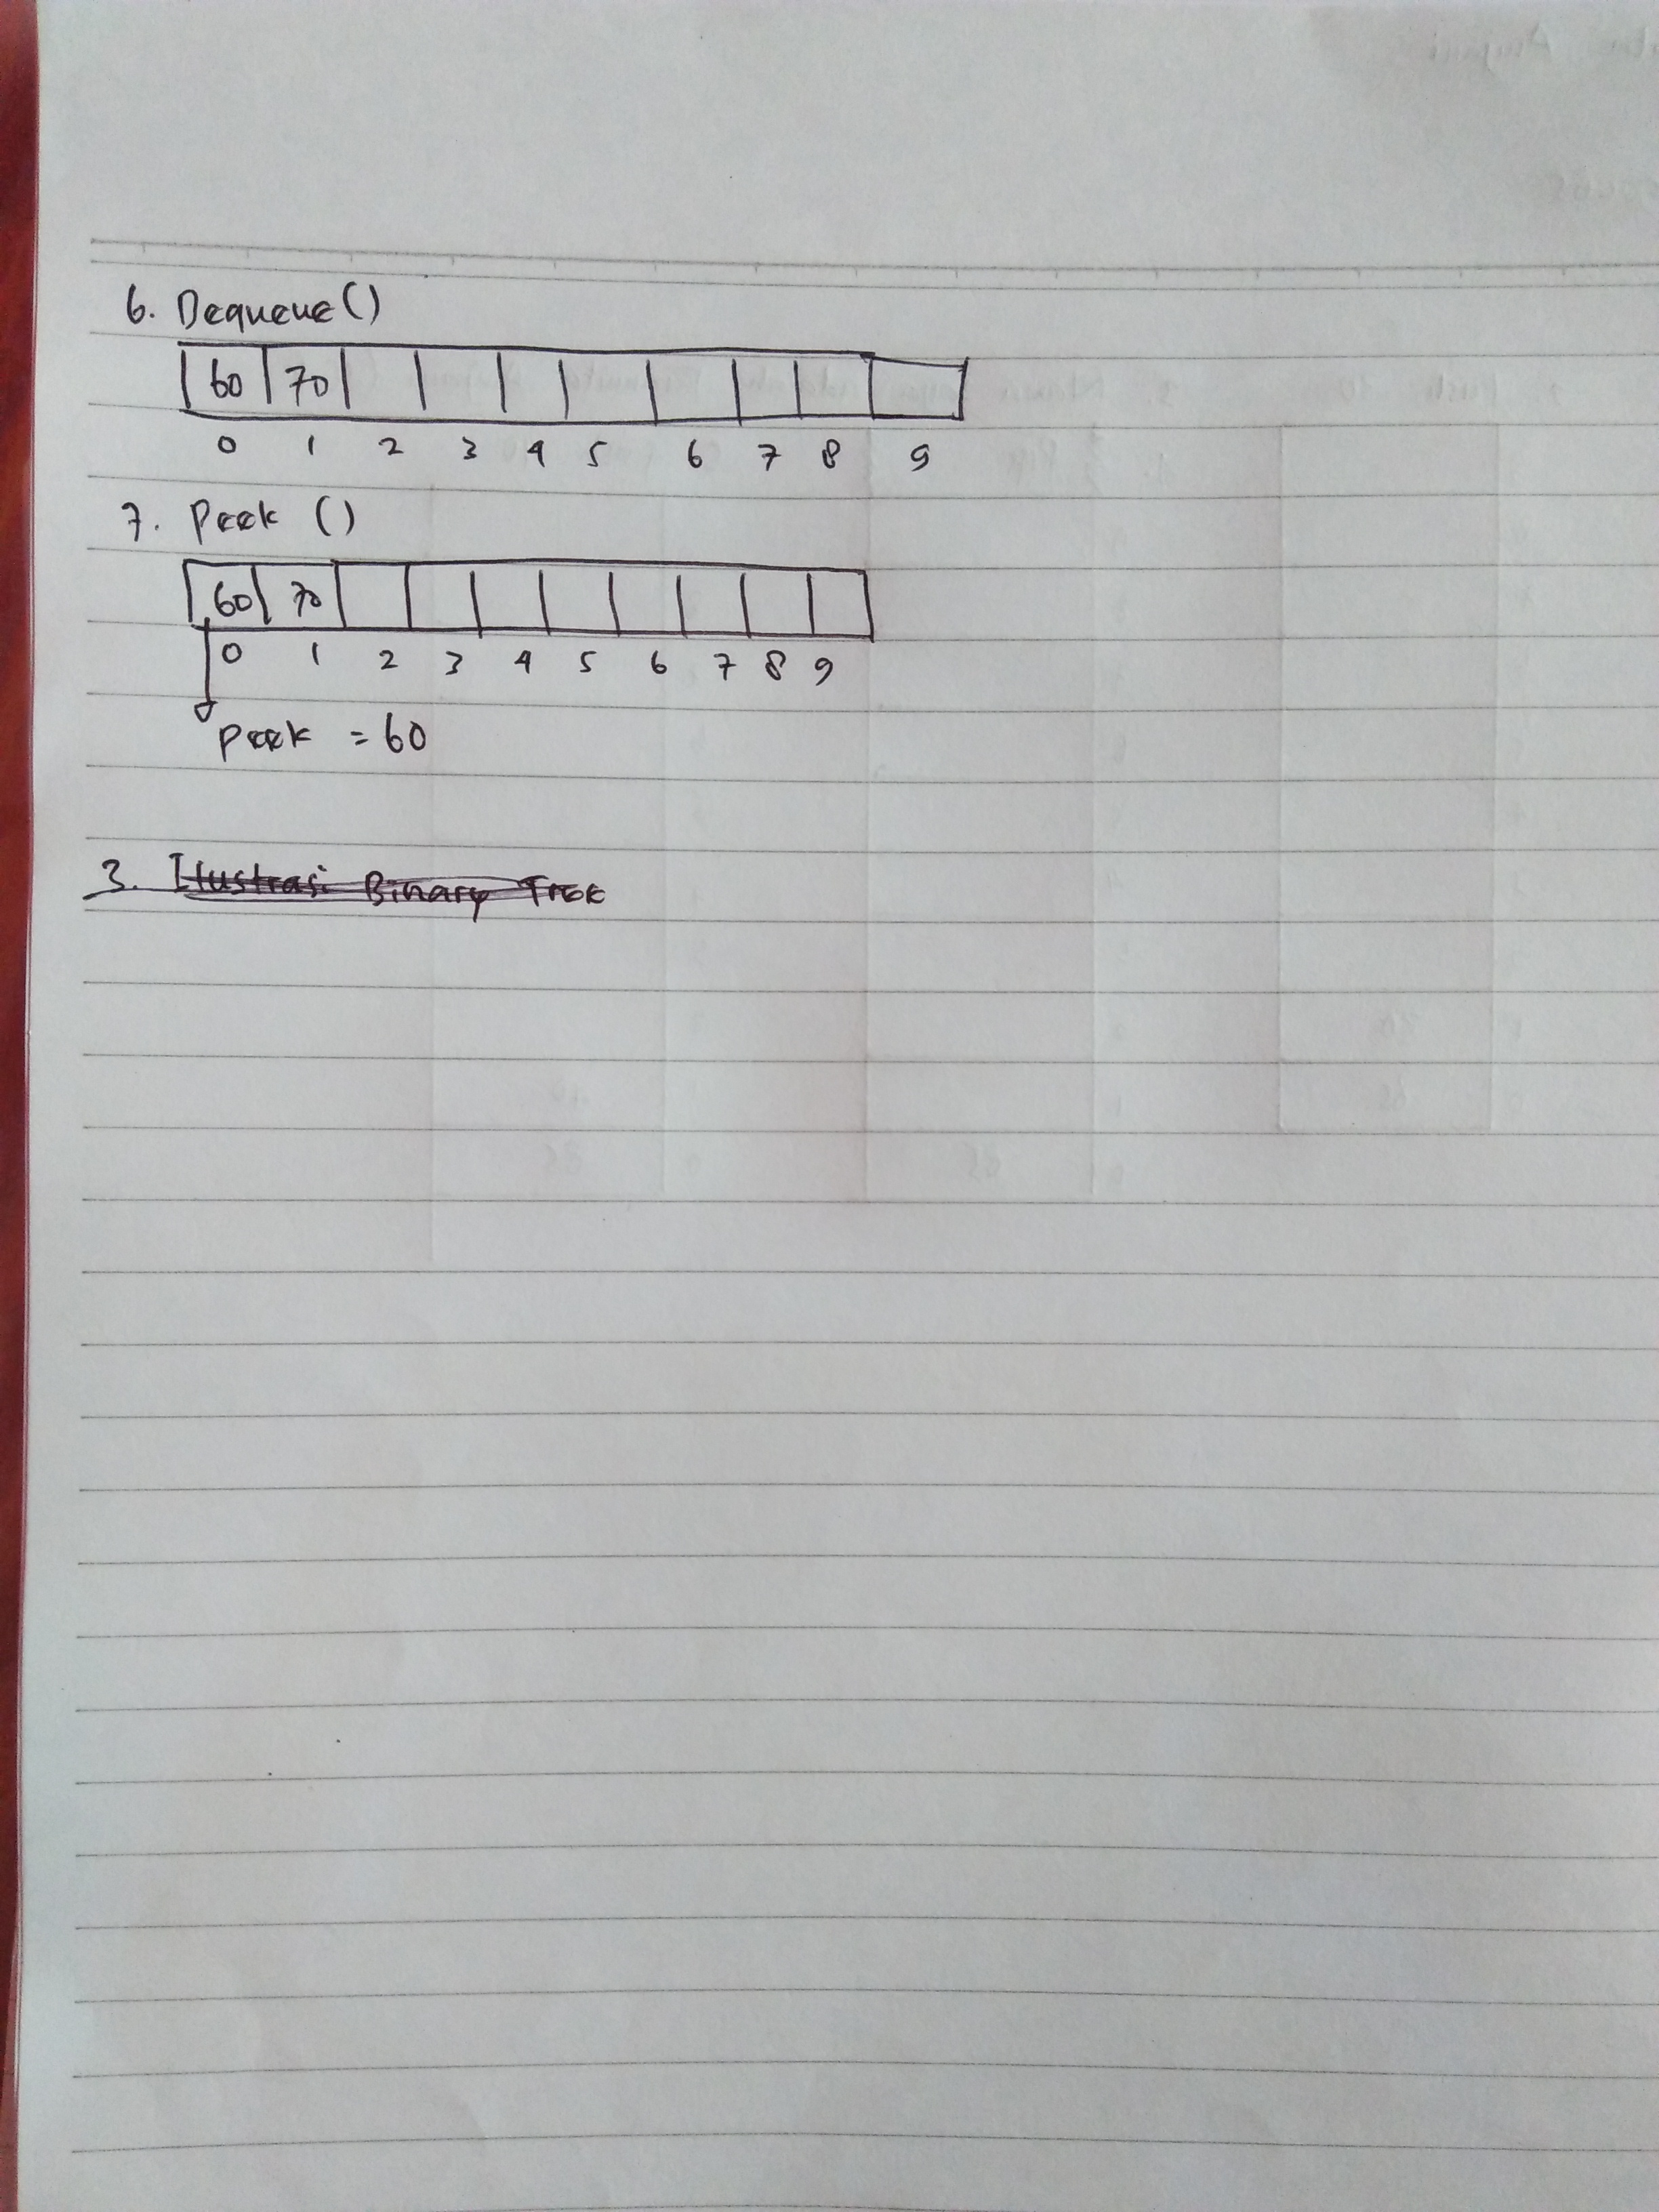 6. Dequeue ()
60 70
0 1 2 3 4 5 6 7 8 9
7. Peek ()
60 70
0 1 2 3 4 5 6 7 8 9
Peek = 60
3. Ilustrasi Binary Tree